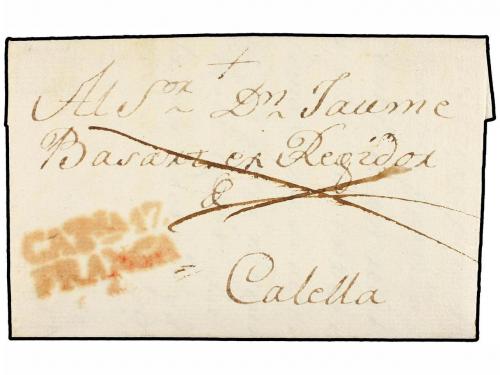 +
Al Sor Dn Jaume
Basart ex Regidor
&
Calella
CATÑA 17.
FRANCA